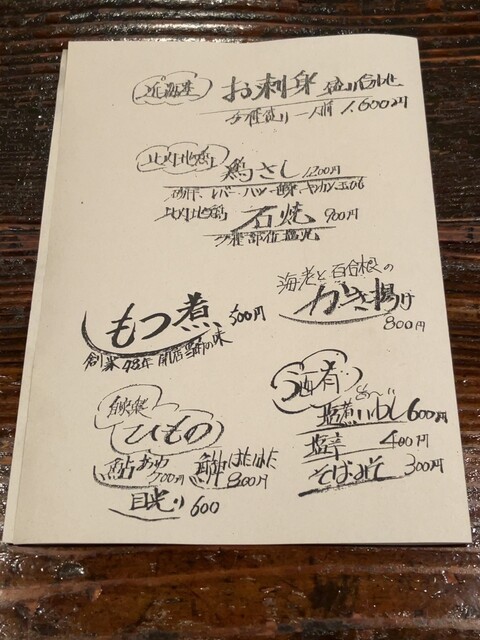 近海産 お刺身 盛り合わせ
5種盛り 一人前 1,600円
比内地鶏 鶏さし 1200円
砂肝、レバー・ハツ
比内地鶏 石焼 900円
5種部位塩焼
海老と百合根の
かき揚げ
800円
もつ煮 500円
創業48年 開店当初の味
自家製
ひもの
鮎 あゆ 700円
鰰 はたはた 800円
目光り 600
酒肴
塩煮いわし 600円
塩辛 400円
そばみそ 300円